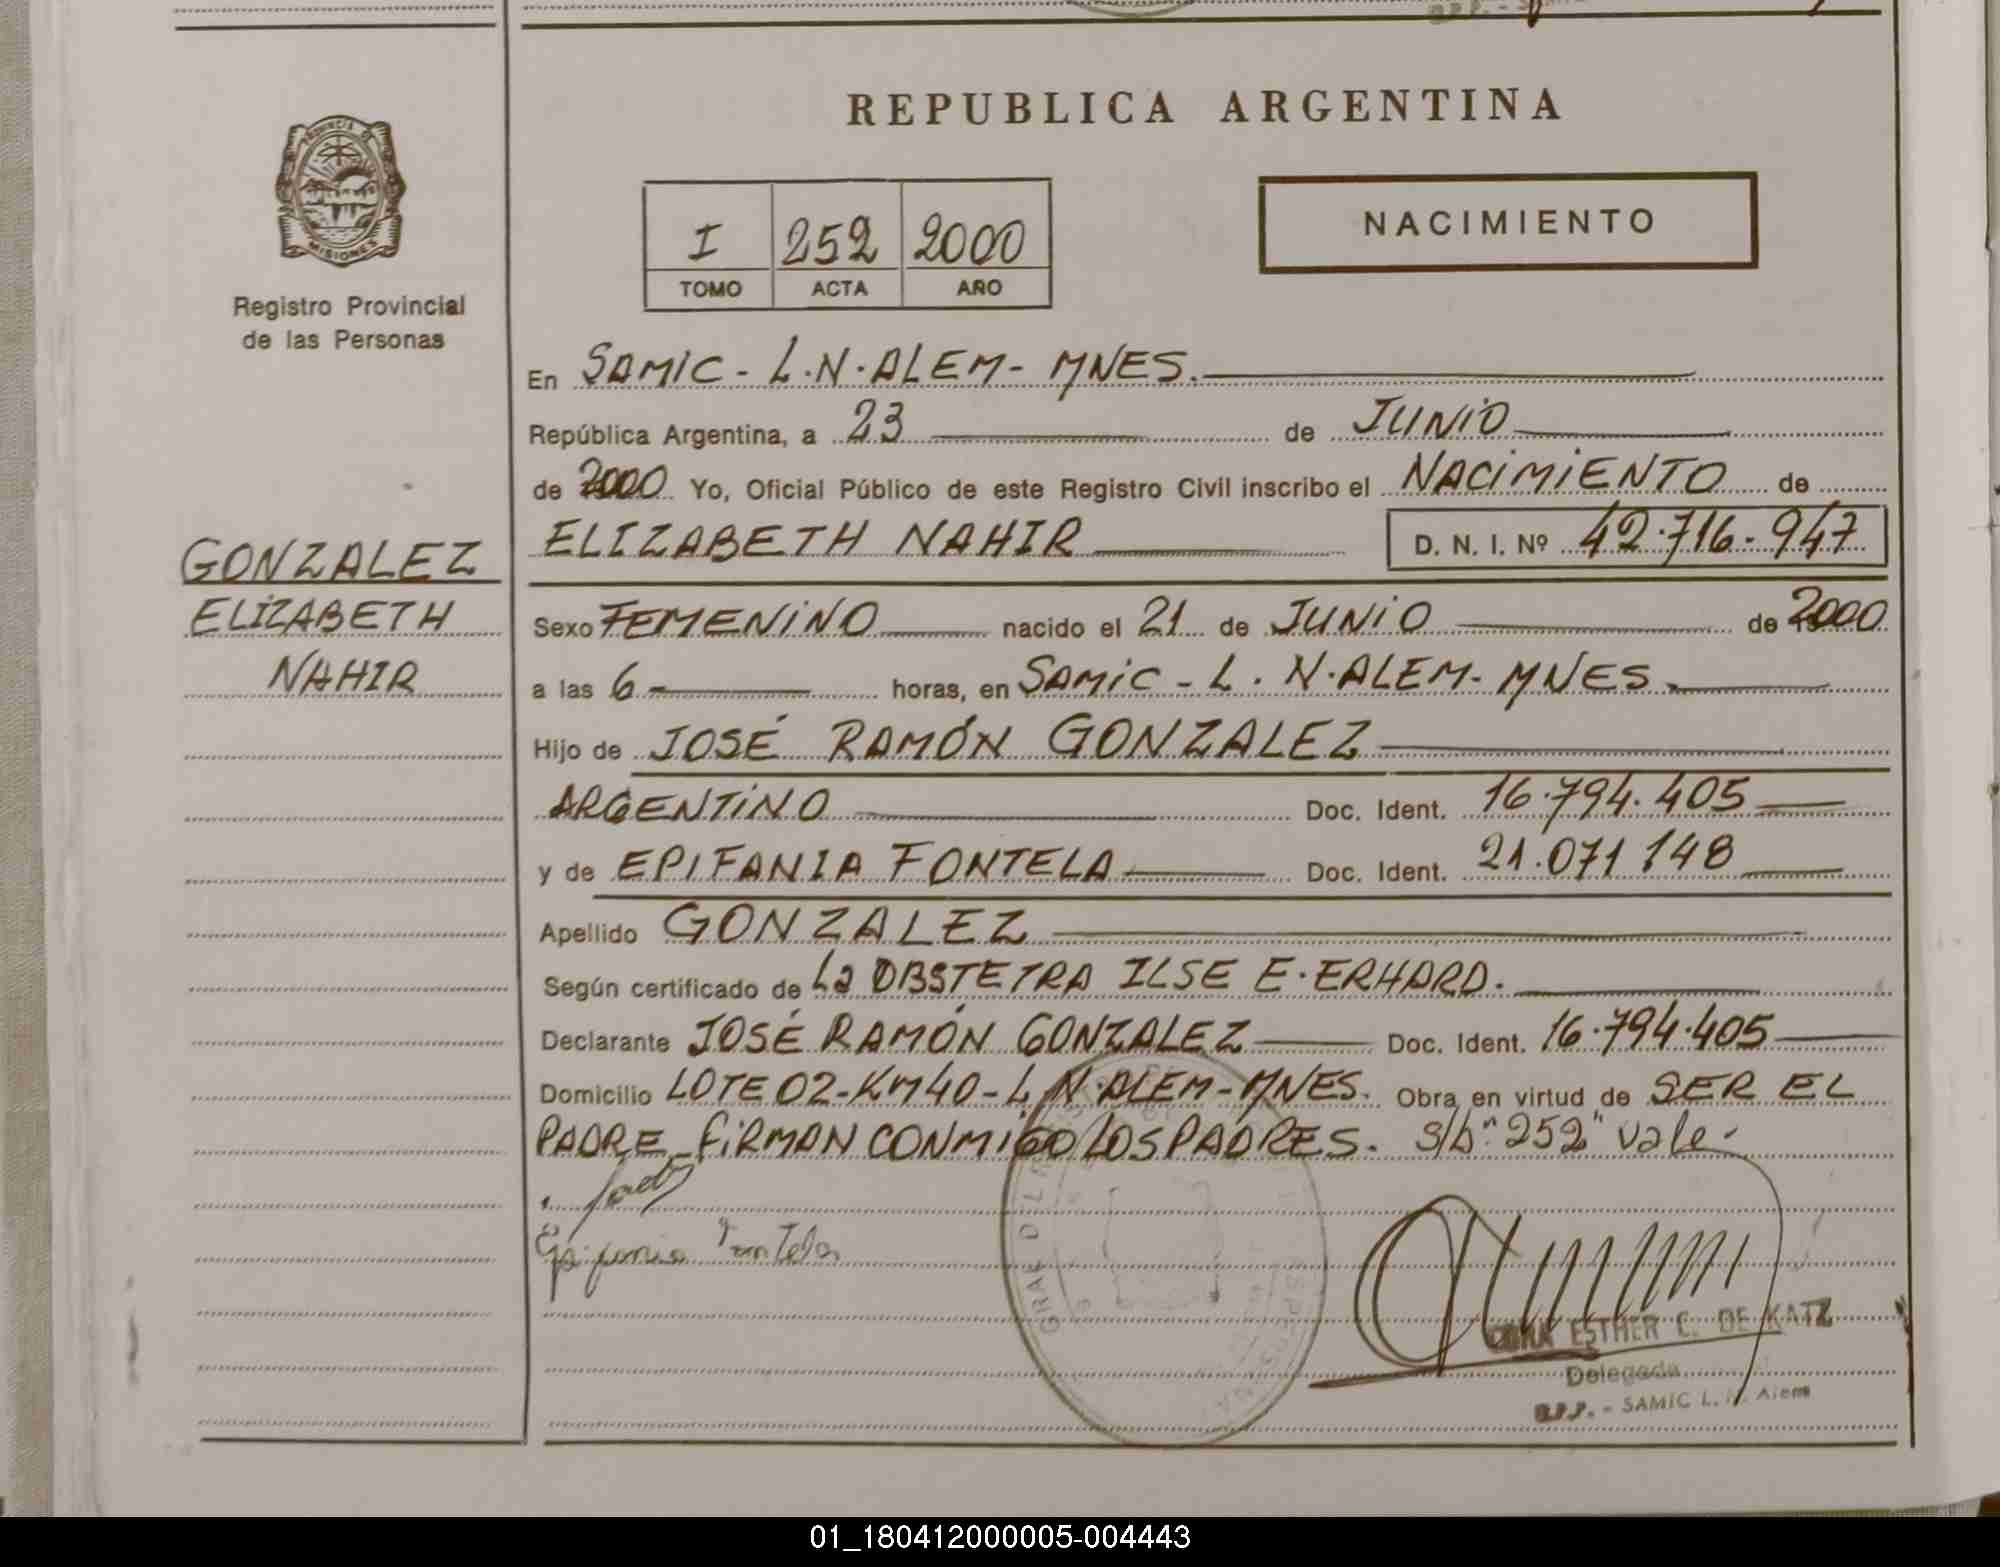 REPUBLICA ARGENTINA
PROVINCIA D
MISIONES
Registro Provincial
de las Personas
I 252 2000
TOMO ACTA AÑO
NACIMIENTO
En SAMIC - L.N.ALEM- MNES.
República Argentina, a 23 de JUNIO
de 2000 Yo, Oficial Público de este Registro Civil inscribo el NACIMIENTO de
ELIZABETH NAHIR D. N. I. Nº 42.716.947
GONZALEZ
ELIZABETH
NAHIR
Sexo FEMENINO nacido el 21 de JUNIO de 2000
a las 6 horas, en SAMIC - L. N. ALEM- MNES.
Hijo de JOSÉ RAMÓN GONZALEZ
ARGENTINO Doc. Ident. 16.794.405
y de EPIFANIA FONTELA Doc. Ident. 21.071 148
Apellido GONZALEZ
Según certificado de La OBSTETRA ILSE E. ERHARD.
Declarante JOSÉ RAMÓN GONZALEZ Doc. Ident. 16.794.405
Domicilio LOTE 02-KM40-L.N.ALEM-MNES. Obra en virtud de SER EL
PADRE_FIRMAN CONMIGO LOS PADRES. s/b: "252" vale.
Epifania Fontela
ESTHER C. DE KATZ
Delegada
- SAMIC L. N. Alem
01_180412000005-004443